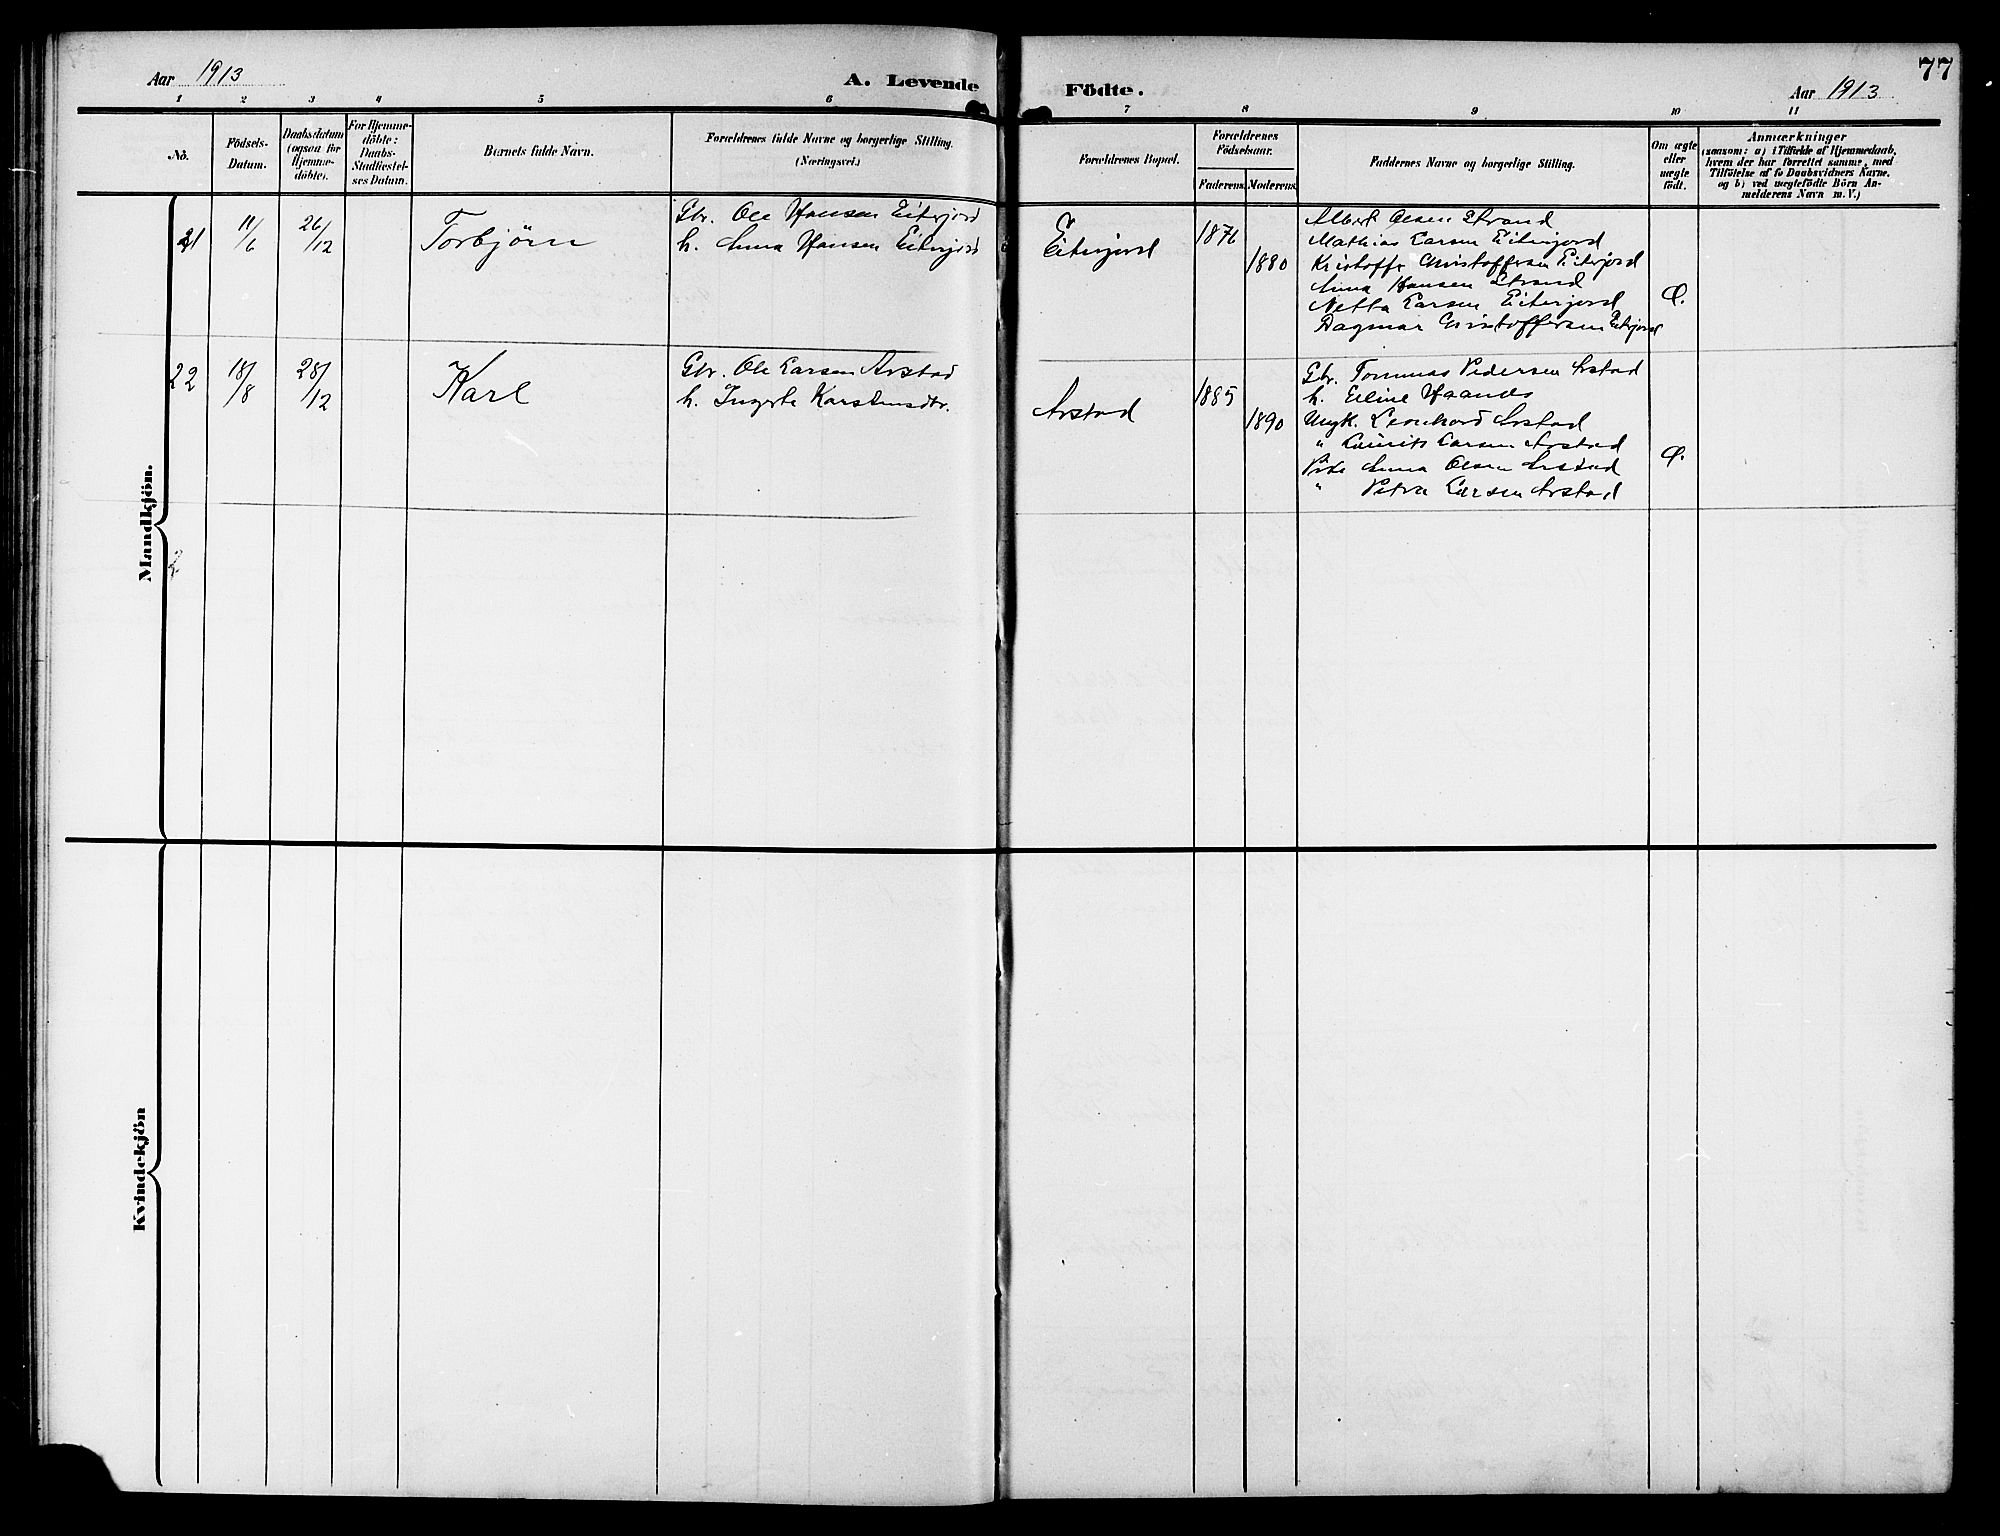 Aar 1913
A. Levende
Födte.
Aar 1913
77
1 2 3 4 5 6 7 8 9 10 11
No.
Födsels-
Datum.
Daabsdatum
(ogsaa for
Hjemme-
döbte).
For Hjemme-
döbte:
Daabs-
Stadfæstel-
ses Datum.
Barnets fulde Navn.
Forældrenes fulde Navne og borgerlige Stilling.
(Næringsvei.)
Forældrenes Bopæl.
Forældrenes
Födselsaar.
Faderens. Moderens.
Faddernes Navne og borgerlige Stilling.
Om ægte
eller
uægte
födt.
Anmærkninger
(saasom: a) i Tilfælde af Hjemmedaab,
hvem der har forrettet samme, med
Tilföielse af to Daabsvidners Navne,
og b) ved uægtefödte Börn An-
melderens Navn m. V.)
Mandkjön.
21
11/6
26/12
Torbjörn
Gbr. Ole Hansen Eiterjord
h. Anna Hansen Eiterjord
Eiterjord
1876
1880
Albert Olsen Strand
Mathias Larsen Eiterjord
Kristoffer Christoffersen Eiterjord
Anna Hansen Strand
Netta Larsen Eiterjord
Dagmar Christoffersen Eiterjord
22
18/8
28/12
Karl
Gbr. Ole Larsen Arstad
h. Ingerta Karstensdtr.
Arstad
1885
1890
Gbr. Tommas Pedersen Arstad
h. Eline Haands
Ungk. Leonhard Arstad
" Laurits Larsen Arstad
Pike Anna Olsen Arstad
" Petra Larsen Arstad
Kvindekjön